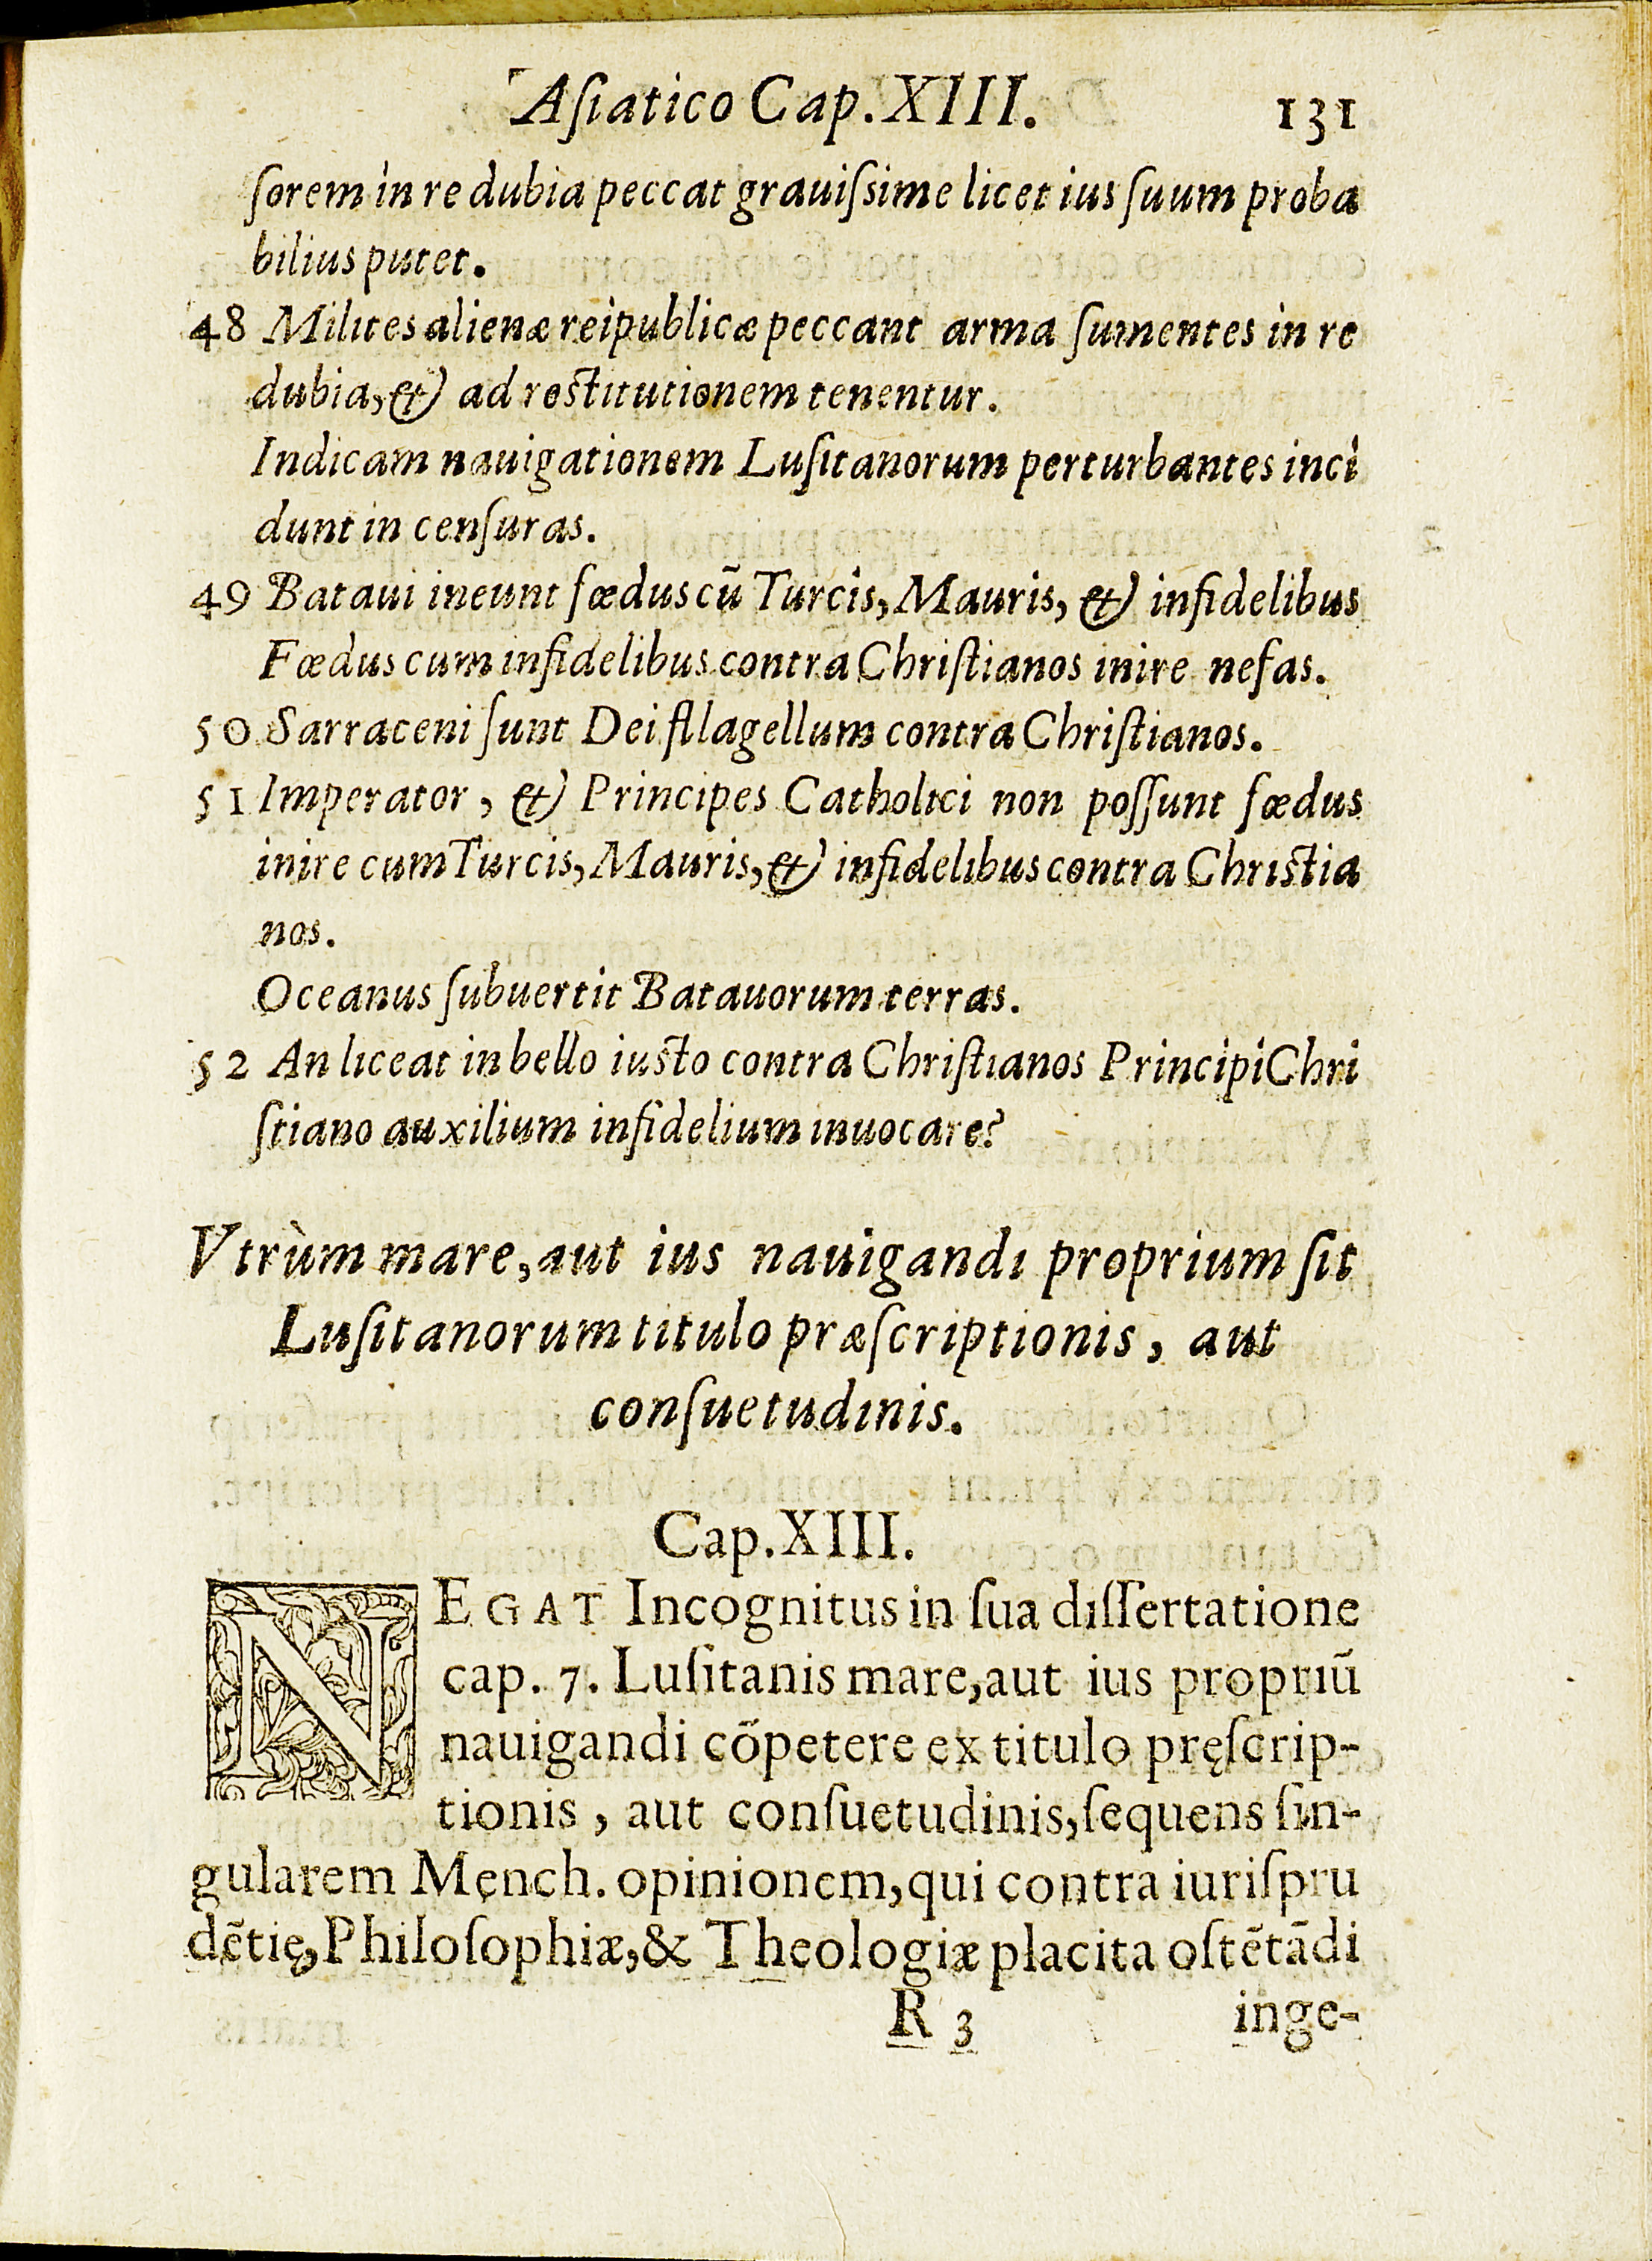 Aſiatico Cap. XIII. 131
ſorem in re dubia peccat grauiſsime licet ius ſuum proba
bilius putet.
48 Milites alienæ reipublicæ peccant arma ſumentes in re
dubia, & ad reſtitutionem tenentur.
Indicam nauigationem Luſitanorum perturbantes inci
dunt in cenſuras.
49 Bataui ineunt fœdus cū Turcis, Mauris, & infidelibus
Fœdus cum infidelibus contra Chriſtianos inire nefas.
50 Sarraceni ſunt Dei fllagellum contra Chriſtianos.
51 Imperator, & Principes Catholici non poſſunt fœdus
inire cum Turcis, Mauris, & infidelibus contra Chriſtia
nos.
Oceanus ſubuertit Batauorum terras.
52 An liceat in bello iuſto contra Chriſtianos Principi Chri
ſtiano auxilium infidelium inuocare?
Vtrùm mare, aut ius nauigandi proprium ſit
Luſitanorum titulo præſcriptionis, aut
conſuetudinis.
Cap. XIII.
NEGAT Incognitus in ſua diſſertatione
cap. 7. Luſitanis mare, aut ius propriū
nauigandi cõpetere ex titulo pręſcrip-
tionis, aut conſuetudinis, ſequens ſin-
gularem Męnch. opinionem, qui contra iuriſpru
dẽtię, Philoſophiæ, & Theologiæ placita oſtẽtãdi
R 3 inge-